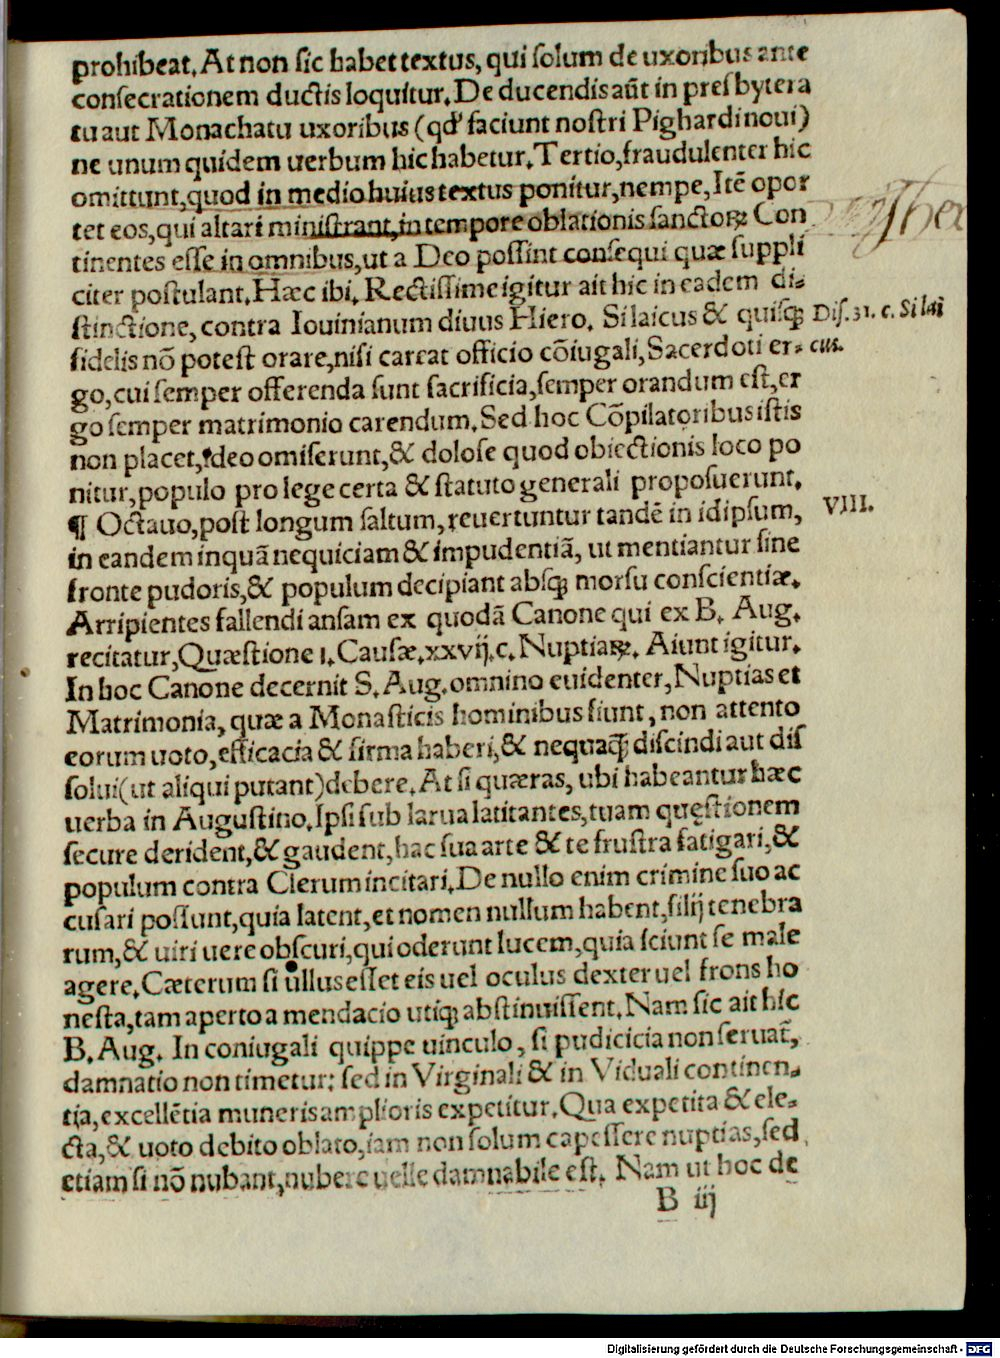 prohibeat. At non sic habet textus, qui solum de uxoribus ante
consecrationem ductis loquitur. De ducendis aũt in presbytera
tu aut Monachatu uxoribus (qd' faciunt nostri Pighardi noui)
ne unum quidem uerbum hic habetur. Tertio, fraudulenter hic
omittunt, quod in medio huius textus ponitur, nempe, Itẽ opor
tet eos, qui altari ministrant, in tempore oblationis sanctoꝝ Con
tinentes esse in omnibus, ut a Deo possint consequi quæ suppli
citer postulant. Hæc ibi. Rectissime igitur ait hic in eadem di-
stinctione, contra Iouinianum diuus Hiero. Si laicus & quisqꝫ
Dis. 31. c. Si lai
fidelis nõ potest orare, nisi careat officio cõiugali, Sacerdoti er-
cus.
go, cui semper offerenda sunt sacrificia, semper orandum est, er
go semper matrimonio carendum. Sed hoc Cõpilatoribus istis
non placet, ideo omiserunt, & dolose quod obiectionis loco po
nitur, populo pro lege certa & statuto generali proposuerunt.
¶ Octauo, post longum saltum, reuertuntur tandẽ in idipsum,
VIII.
in eandem inquã nequiciam & impudentiã, ut mentiantur sine
fronte pudoris, & populum decipiant absqꝫ morsu conscientiæ.
Arripientes fallendi ansam ex quodã Canone qui ex B. Aug.
recitatur, Quæstione 1. Causæ. xxvij. c. Nuptiaꝝ. Aiunt igitur.
In hoc Canone decernit S. Aug. omnino euidenter, Nuptias et
Matrimonia, quæ a Monasticis hominibus fiunt, non attento
eorum uoto, efficacia & firma haberi, & nequaqꝫ discindi aut dis
solui (ut aliqui putant) debere. At si quæras, ubi habeantur hæc
uerba in Augustino. Ipsi sub larua latitantes, tuam quęstionem
secure derident, & gaudent, hac sua arte & te frustra fatigari, &
populum contra Clerum incitari. De nullo enim crimine suo ac
cusari possunt, quia latent, et nomen nullum habent, filij tenebra
rum, & uiri uere obscuri, qui oderunt lucem, quia sciunt se male
agere. Cæterum si ullus esset eis uel oculus dexter uel frons ho
nesta, tam aperto a mendacio utiqꝫ abstinuissent. Nam sic ait hic
B. Aug. In coniugali quippe uinculo, si pudicicia non seruat̃,
damnatio non timetur: sed in Virginali & in Viduali continen-
tia, excellẽtia muneris amplioris expetitur. Qua expetita & ele-
cta, & uoto debito oblato, iam non solum capessere nuptias, sed
etiam si nõ nubant, nubere uelle damnabile est. Nam ut hoc de
B iij
Digitalisierung gefördert durch die Deutsche Forschungsgemeinschaft - DFG